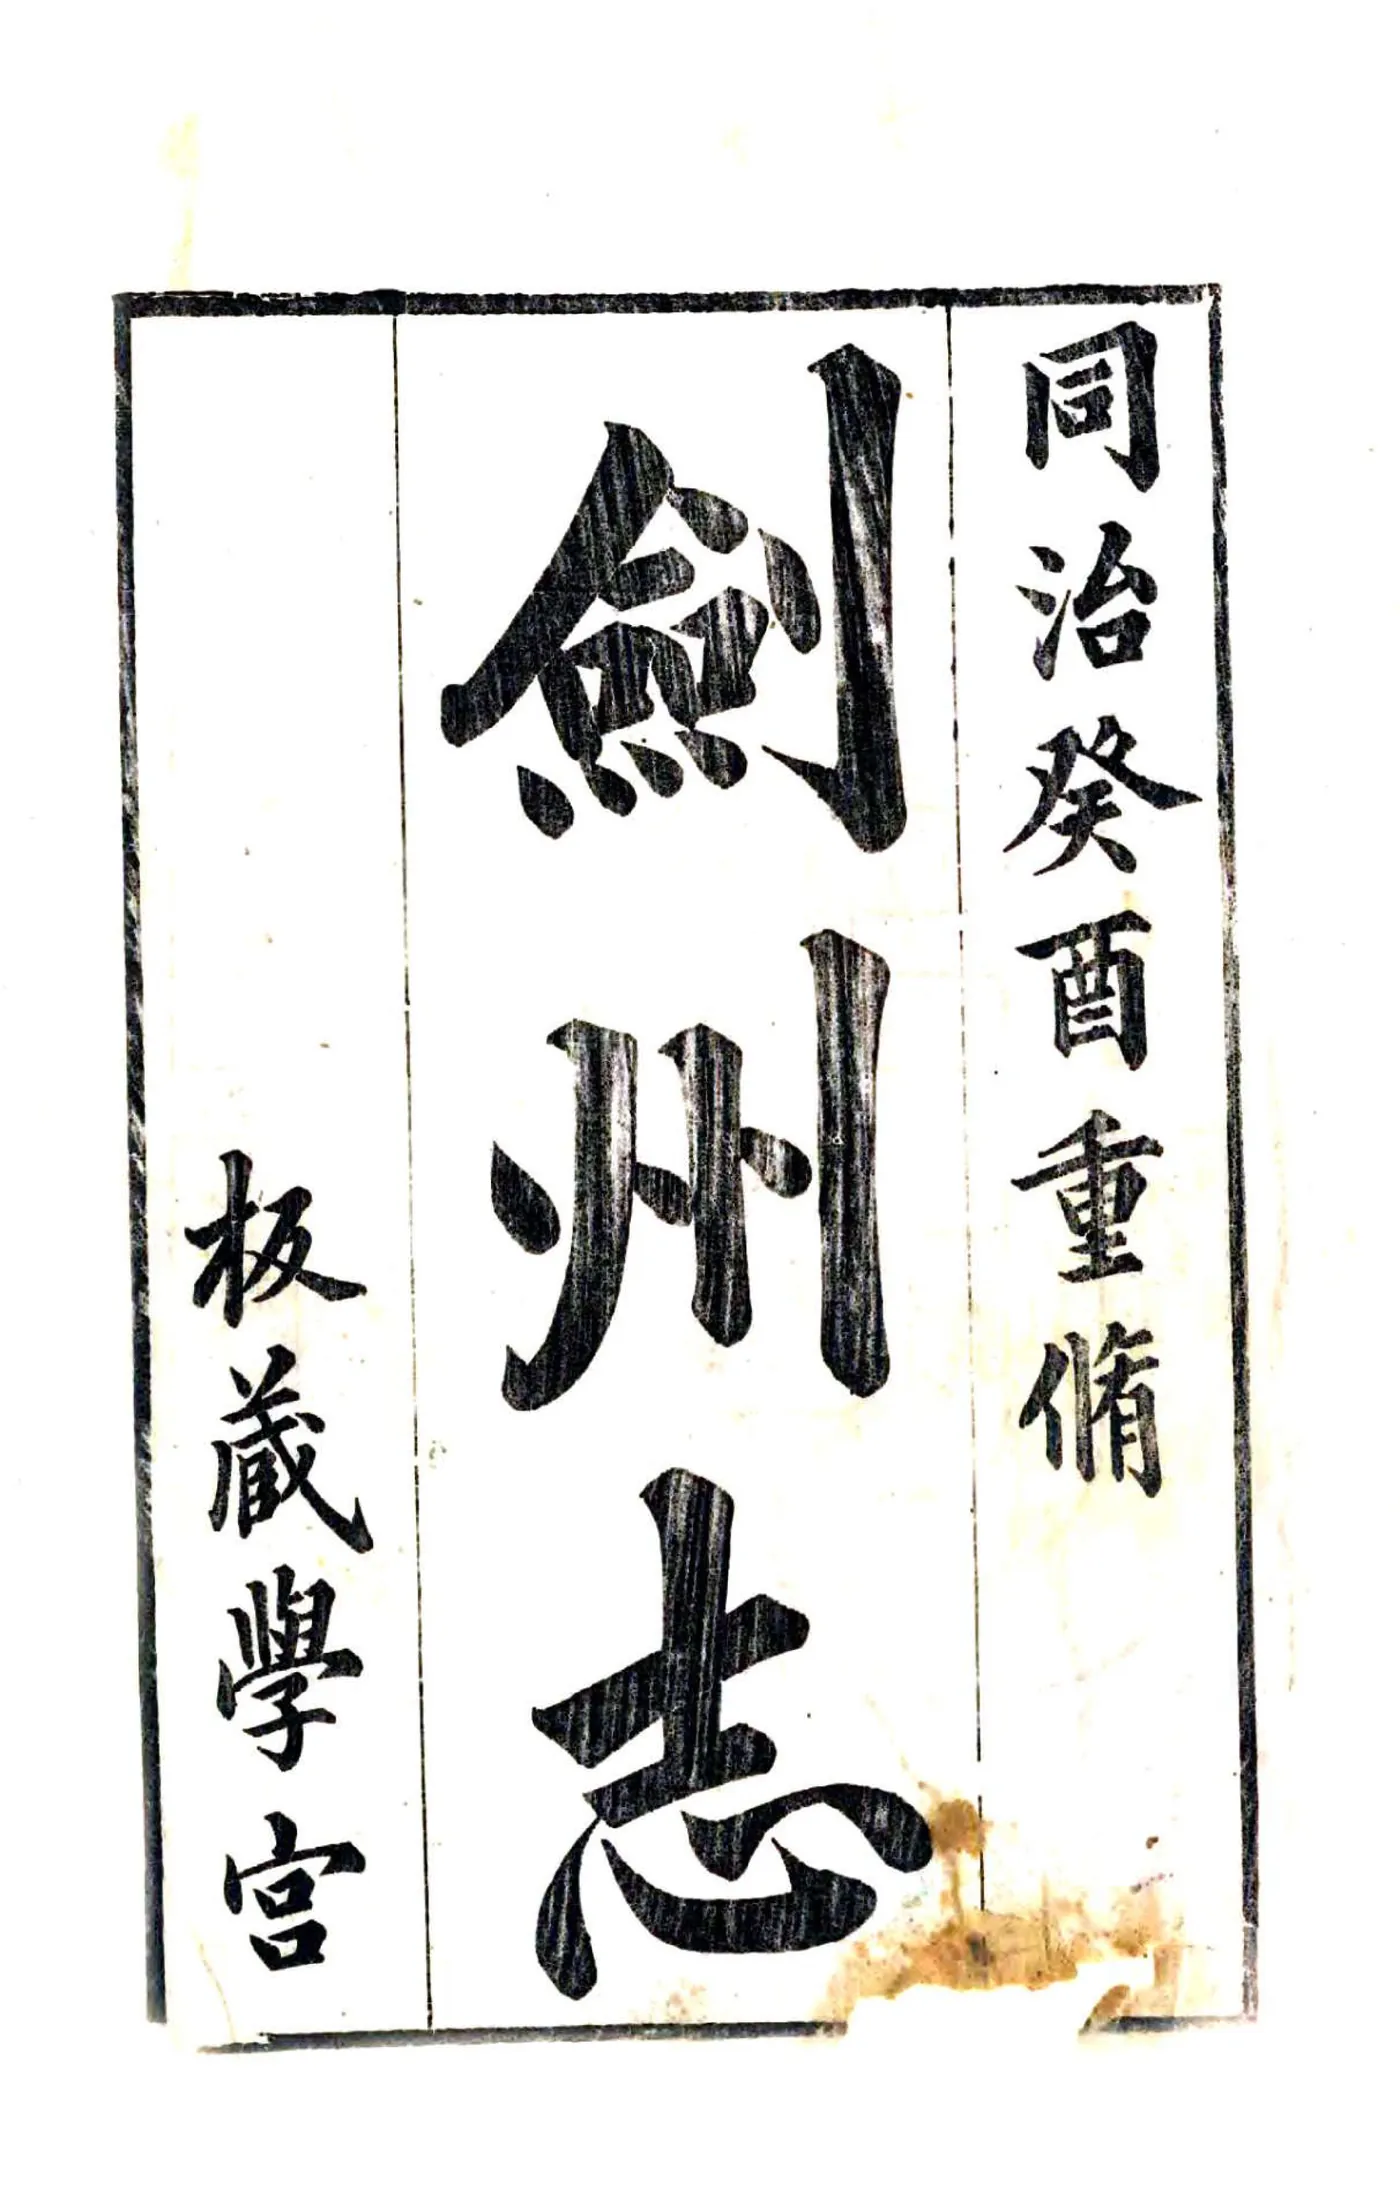 同治癸酉重脩
劍州志
板蔵學宫